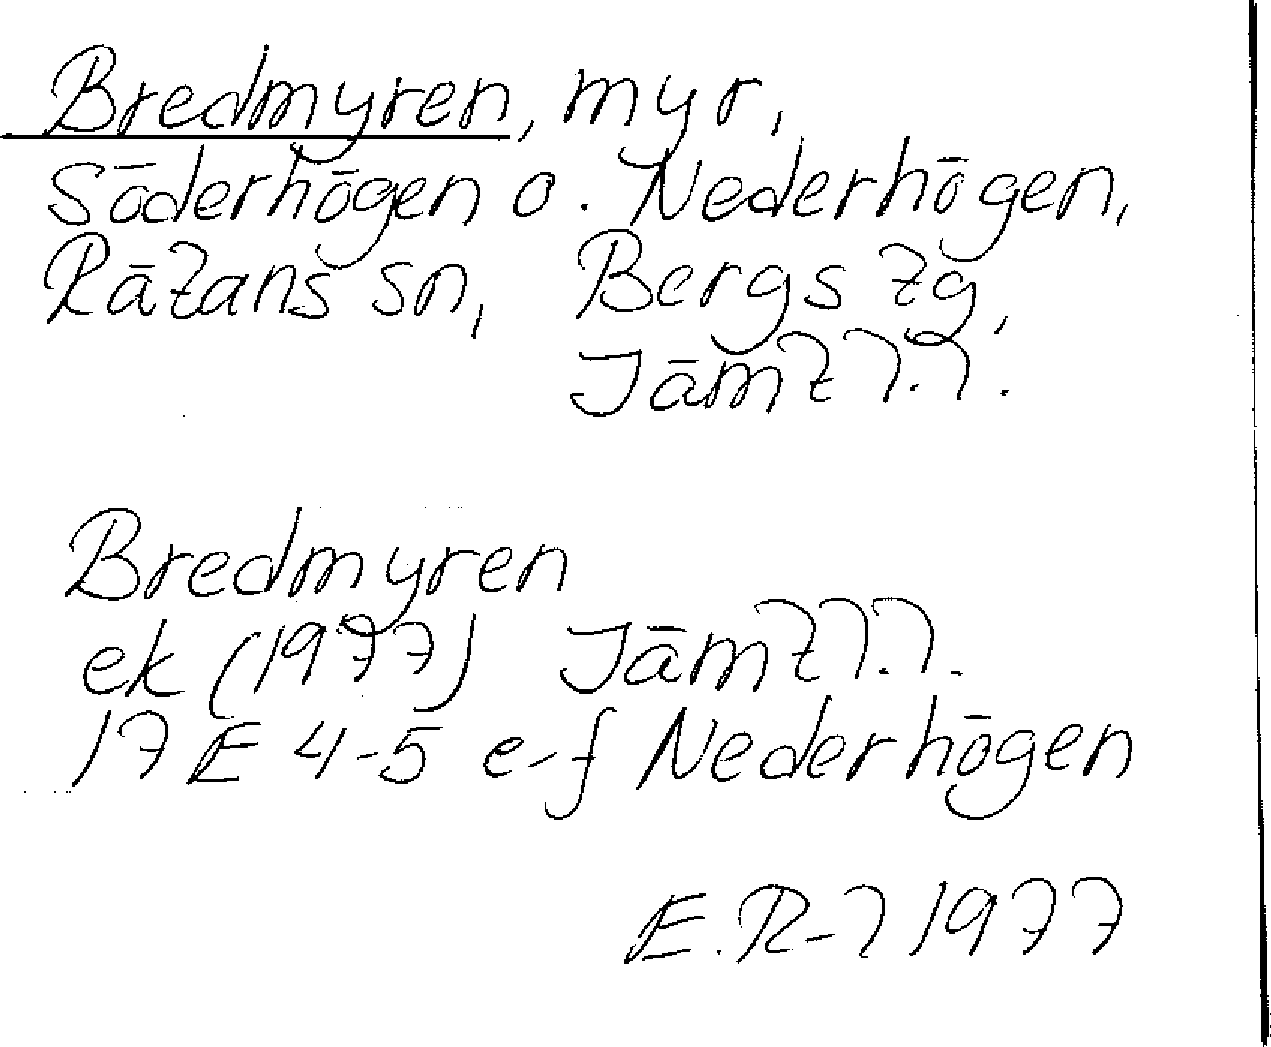 Bredmyren, myr,
Söderhögen o. Nederhögen,
Rätans sn, Bergs tg,
Jämtl.l.
Bredmyren
ek (1977) Jämtl.l.
17 E 4-5 e-f Nederhögen
E.R-l 1977